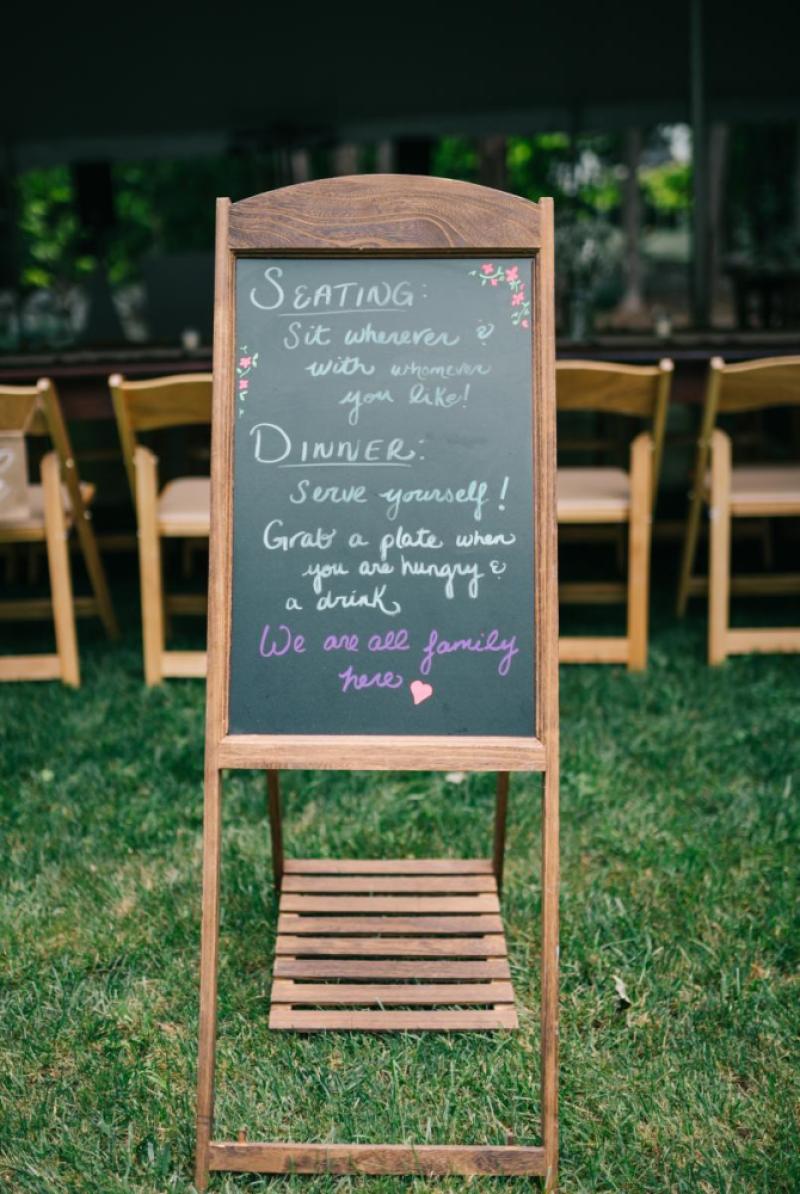 SEATING:
Sit wherever &
with whomever
you like!
DINNER:
Serve yourself!
Grab a plate when
you are hungry &
a drink
We are all family
here